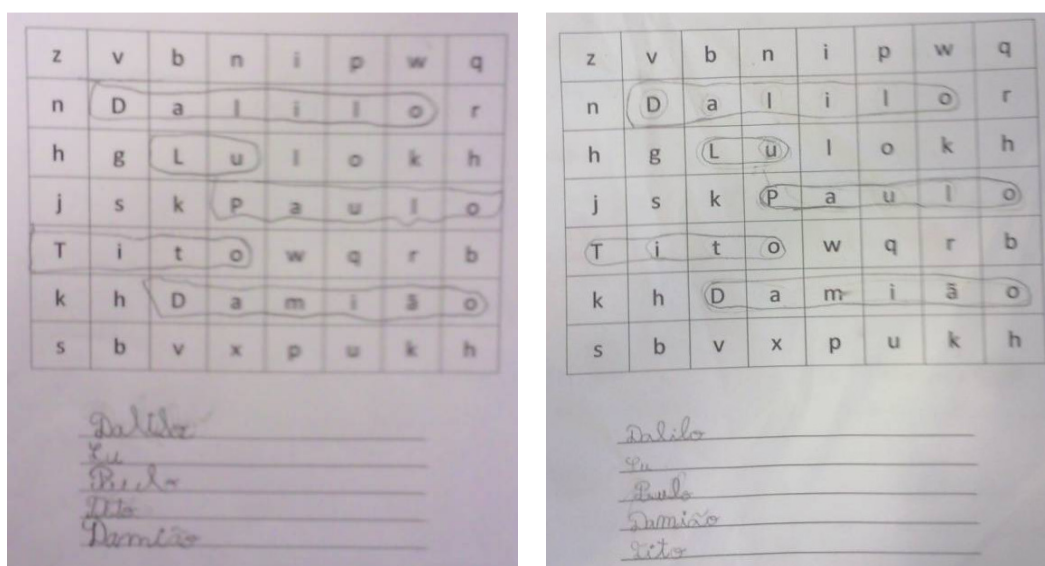 z v b n i p w q
n D a l i l o r
h g L u l o k h
j s k P a u l o
T i t o w q r b
k h D a m i ã o
s b v x p u k h
Dalilo
Lu
Paulo
Tito
Damião
z v b n i p w q
n D a l i l o r
h g L u l o k h
j s k P a u l o
T i t o w q r b
k h D a m i ã o
s b v x p u k h
Dalilo
Lu
Paulo
Damião
Tito